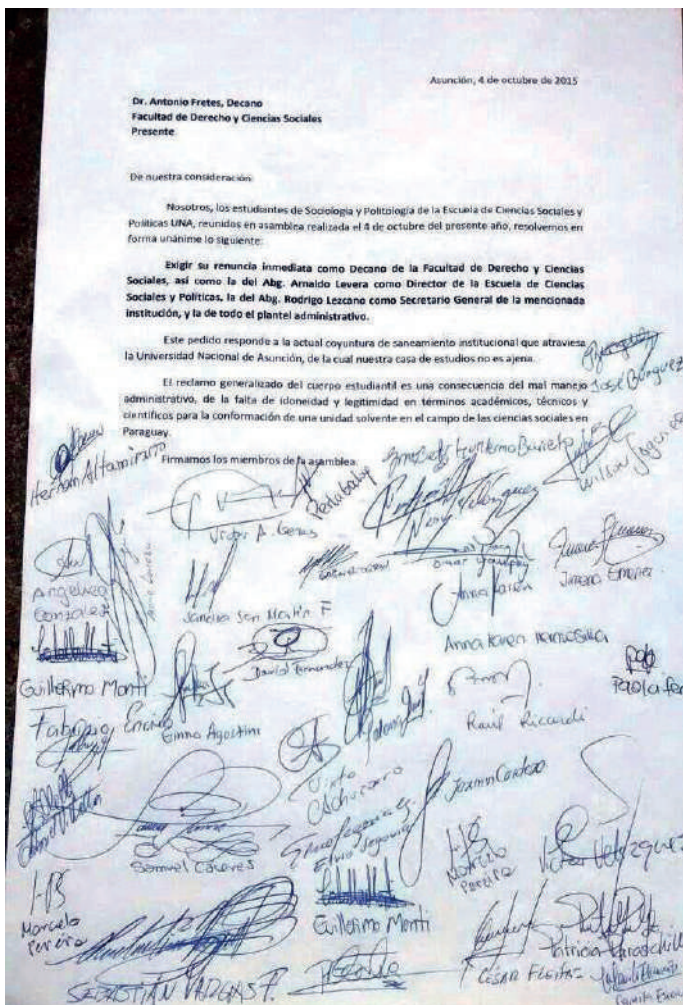 Asunción, 4 de octubre de 2015
Dr. Antonio Fretes, Decano
Facultad de Derecho y Ciencias Sociales
Presente
De nuestra consideración:
Nosotros, los estudiantes de Sociología y Politología de la Escuela de Ciencias Sociales y
Políticas UNA, reunidos en asamblea realizada el 4 de octubre del presente año, resolvemos en
forma unánime lo siguiente:
Exigir su renuncia inmediata como Decano de la Facultad de Derecho y Ciencias
Sociales, así como la del Abg. Arnaldo Levera como Director de la Escuela de Ciencias
Sociales y Políticas, la del Abg. Rodrigo Lezcano como Secretario General de la mencionada
institución, y la de todo el plantel administrativo.
Este pedido responde a la actual coyuntura de saneamiento institucional que atraviesa
la Universidad Nacional de Asunción, de la cual nuestra casa de estudios no es ajena.
El reclamo generalizado del cuerpo estudiantil es una consecuencia del mal manejo
administrativo, de la falta de idoneidad y legitimidad en términos académicos, técnicos y
científicos para la conformación de una unidad solvente en el campo de las ciencias sociales en
Paraguay.
José Bürguez
Firmamos los miembros de la asamblea
Hernan Altamirano
Guillermo Barreto
Wilson
Victor A.
Nery Velázquez
Angelica
Gonzalez
Sandra San Martin F
Anna Karen
Jimena
Anna Karen Hermosilla
Guillermo Monti
David Fernandez
Paola
Fabrizio
Gimna Agostini
Raúl Ricardi
Cardozo
Samuel Cáceres
Elvio Segovia
Marcelo
Pereira
Victor Velázquez
Marcelo
Pereira
Guillermo Monti
Patricia
SEBASTIÁN VARGAS F.
CÉSAR FLEITAS